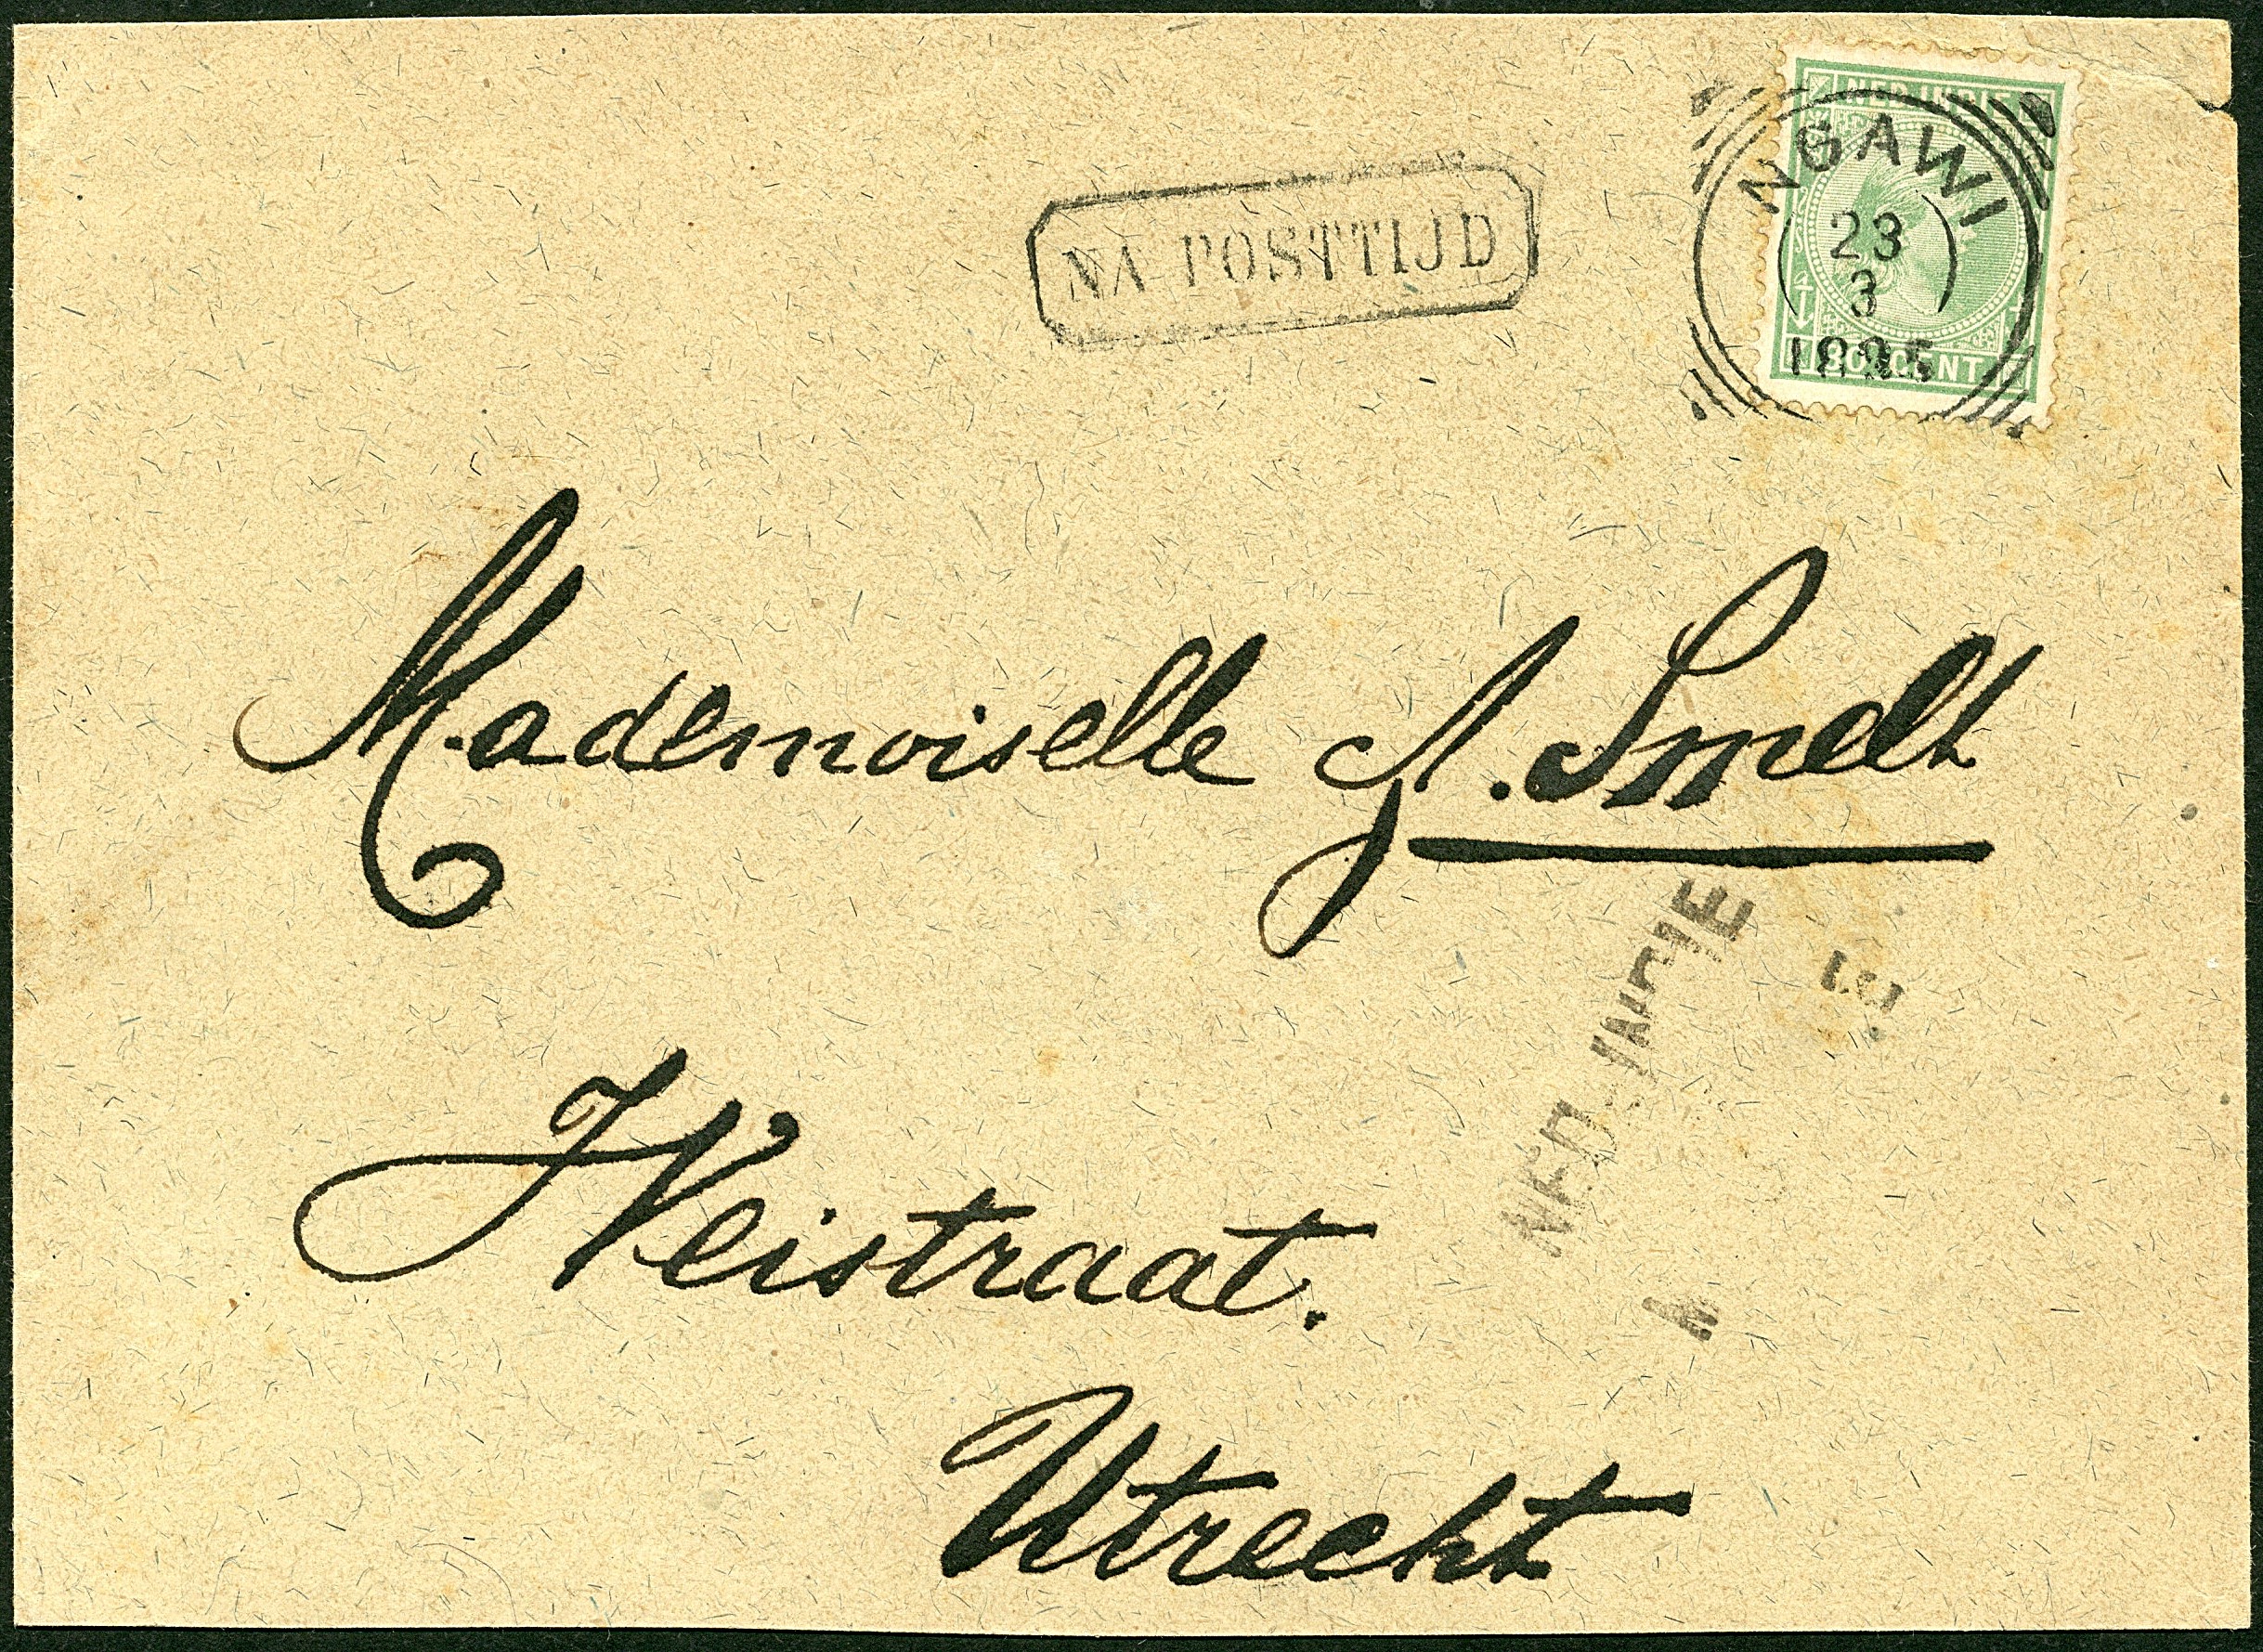 NED. INDIE
NGAWI
23
3
1895
30 CENT
NA POSTTIJD
Mademoiselle Smelt
Keistraat.
Utrecht
NED-INDIE